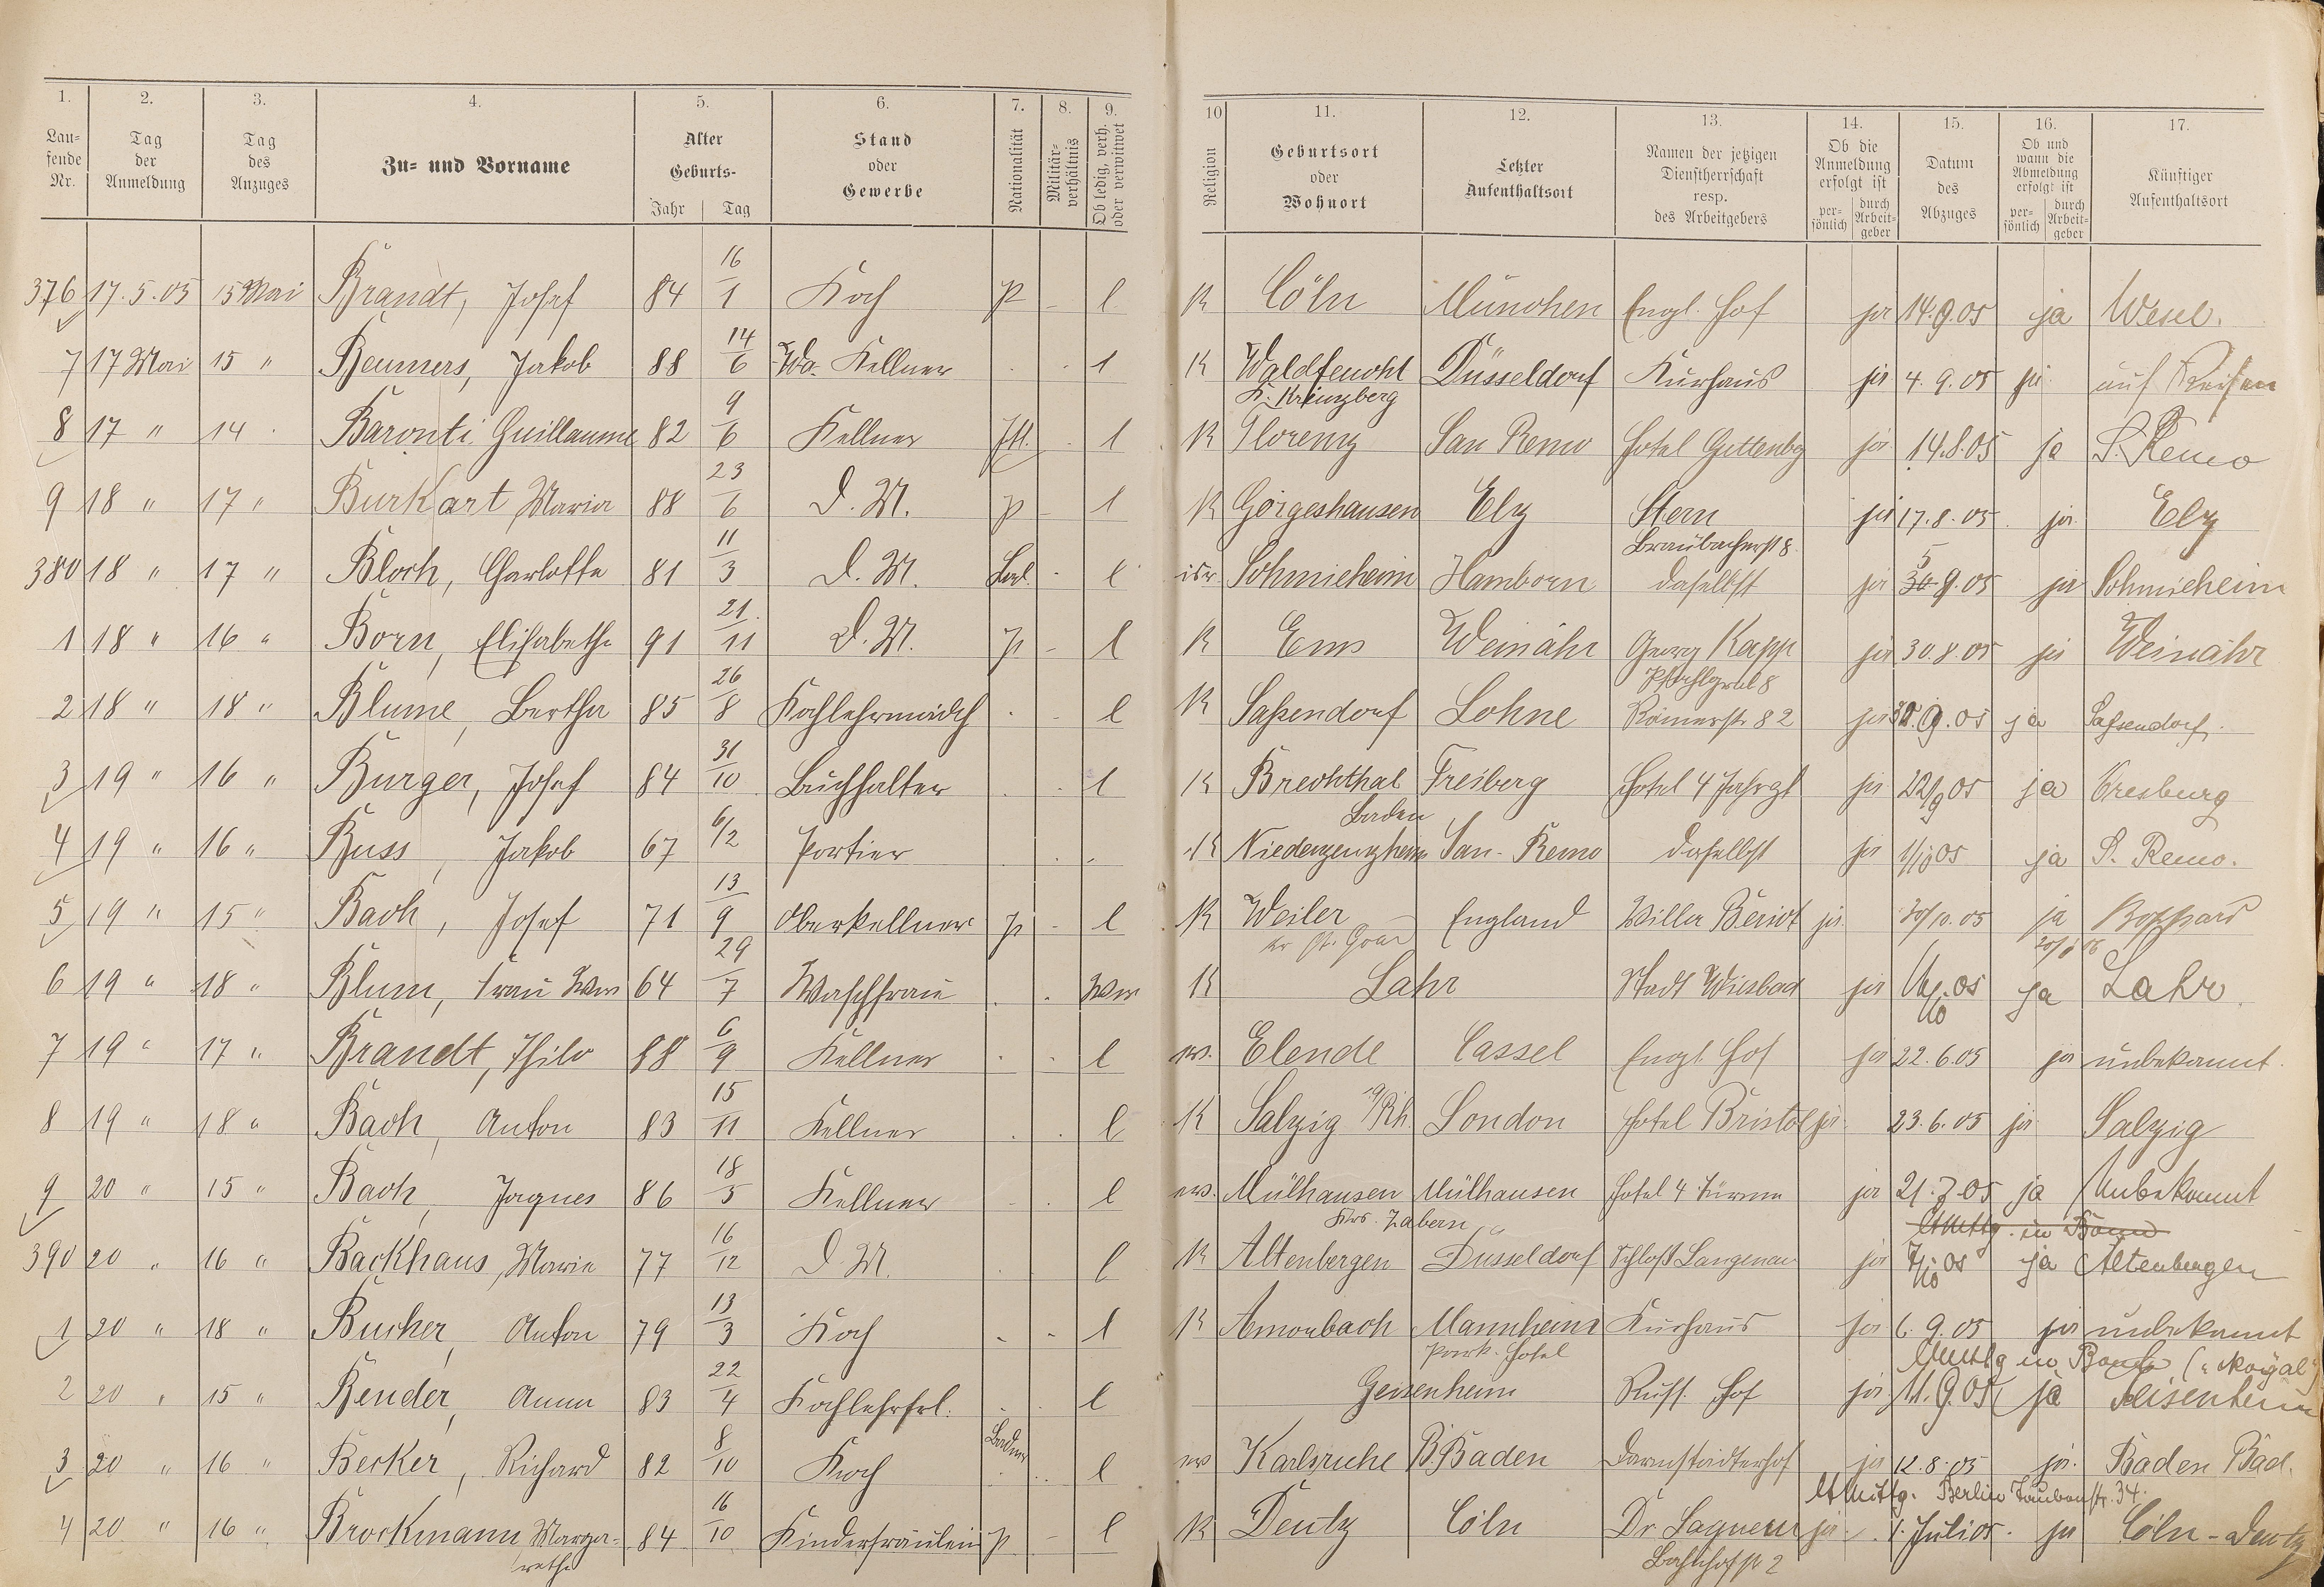 1. 2. 3. 4. 5. 6. 7. 8. 9. 10 11. 12. 13. 14. 15. 16. 17.
Lau-
fende
Nr.
Tag
der
Anmeldung
Tag
des
Anzuges
Zu- und Vorname
Alter
Geburts-
Jahr Tag
Stand
oder
Gewerbe
Nationalität
Militär-
verhältnis
Ob ledig, verh.
oder verwitwet
Religion
Geburtsort
oder
Wohnort
Letzter
Aufenthaltsort
Namen der jetzigen
Dienstherrschaft
resp.
des Arbeitgebers
Ob die
Anmeldung
erfolgt ist
per-
sönlich
durch
Arbeit-
geber
Datum
des
Abzuges
Ob und
wann die
Abmeldung
erfolgt ist
per-
sönlich
durch
Arbeit-
geber
Künftiger
Aufenthaltsort
376 17.5.05 15 Mai Brandt, Josef 84 16/1 Koch p - l K Cöln München Engl. Hof ja 14.9.05 ja Wesel.
7 17 Mai 15 " Beumers, Jakob 88 14/6 Kellner l K Düsseldorf Kurhaus ja 4.9.05 ja auf Reisen
8 17 " 14 Baronti Guillaume 82 9/6 Kellner Itl. l K Florenz San Remo Hotel Guttenbg ja 14.8.05 ja S. Remo
9 18 " 17 " Burkart Maria 88 23/6 D. M. p - l K Görgeshausen Elz Stern ja 17.8.05 ja Elz
Braubacherst 8.
380 18 " 17 " Bloch, Charlotte 81 11/3 D. M. Bad. - l isr Schmieheim Hamborn daselbst ja 30 5 9.05 ja Schmieheim
1 18 " 16 " Born, Elisabethe 91 21/11 D. M. p - l K Ems Weinähr Georg Kapp ja 30.8.05 ja Weinähr
2 18 " 18 " Blume, Bertha 85 26/8 Kochlehrmädch l K Sassendorf Lohne Römerstr. 82 ja 30.9.05 ja Sassendorf.
3 19 " 16 " Burger, Josef 84 31/10 Buchhalter l K Brechthal Freiberg Hotel 4 Jahrzt ja 22/9 05 ja Freiburg
Baden
4 19 " 16 " Buss, Jakob 67 6/2 Portier K San-Remo daselbst ja 1/10 05 ja S. Remo.
5 19 " 15 " Bach, Josef 71 13/9 Oberkellner p - l K Weiler England Villa Beriot ja 20/10.05 ja Boppard
kr St. Goar
6 19 " 18 " Blum, Frau Wwe 64 29/7 Waschfrau Ww K Lahr Stadt Wiesbad ja ja Lahr.
7 19 " 17 " Brandt, Thilo 88 6/9 Kellner l ev. Elende Cassel Engl Hof ja 22.6.05 ja unbekannt.
8 19 " 18 " Bach, Anton 83 15/11 Kellner l K Salzig a/Rh. London Hotel Bristol ja 23.6.05 ja Salzig
9 20 " 15 " Bach, Jaques 86 18/5 Kellner l ev. Mülhausen Mülhausen Hotel 4 Türme ja 21.7.05 ja Unbekannt
Krs. Zabern
390 20 " 16 " Backhaus, Marie 77 16/12 D. M. l K Altenbergen Düsseldorf Schloß Langenau ja 7/10 05 ja Altenbergen
1 20 " 18 " Bucher, Anton 79 13/3 Koch l K Amorbach Mannheim Kurhaus ja 6.9.05 ja unbekannt
Park-Hotel
2 20 " 15 " Bender, Anna 83 22/4 Kochlehrfrl. l Geisenheim Russ. Hof ja 11.9.05 ja Geisenheim
3 20 " 16 " Becker, Richard 82 8/10 Koch Baden l ev Karlsruhe B.Baden Darmstädterhof ja 12.8.05 ja. Baden Bad.
Berlin Taubenstr. 34.
4 20 " 16 " Brockmann Marga- 84 16/10 Kinderfräulein p - l K Deutz Cöln ja 1. Juli 05. ja Cöln-Deutz
rethe
Bahnhofst 2